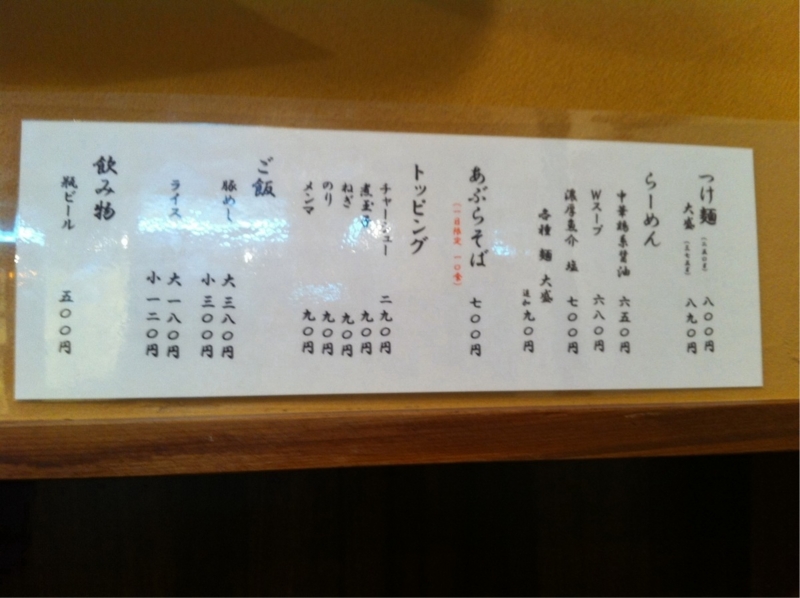 つけ麺(二五〇g) 八〇〇円
大盛(三七五g) 八九〇円
らーめん
中華鶏系醤油 六五〇円
Wスープ 六八〇円
濃厚魚介 塩 七〇〇円
各種 麺 大盛 追加 九〇円
あぶらそば 七〇〇円
(一日限定 一〇食)
トッピング
チャーシュー 二九〇円
煮玉子 九〇円
ねぎ 九〇円
のり 九〇円
メンマ 九〇円
ご飯
豚めし 大 三八〇円
小 三〇〇円
ライス 大 一八〇円
小 一二〇円
飲み物
瓶ビール 五〇〇円